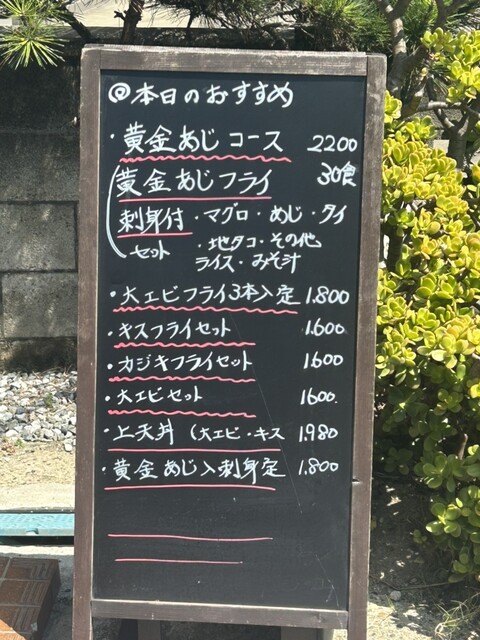 @本日のおすすめ
・黄金あじコース 2200
黄金あじフライ 30食
刺身付・マグロ・あじ・タイ
セット・地タコ・その他
ライス・みそ汁
・大エビフライ3本入定 1.800
・キスフライセット 1.600
・カジキフライセット 1.600
・大エビセット 1600.
・上天丼(大エビ・キス 1.980
・黄金あじ入刺身定 1.800